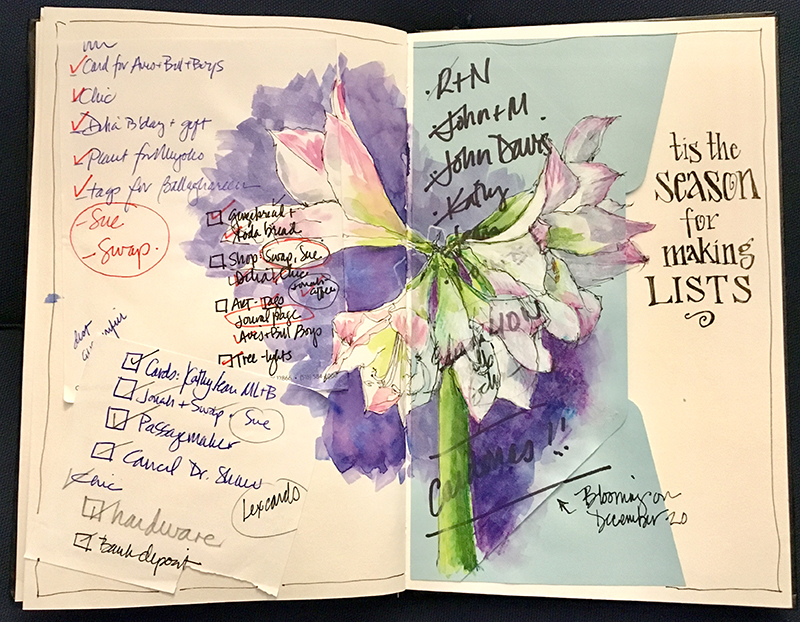 Card for Aves + Bill + Boys
Chic
Delia B'day + gift
Plant for Miyoko
tags for Ballaghareen
- Sue
- Swap.
Gingerbread +
Soda bread
Shop: Swap, Sue
Delia, Chic
Art - Tags
Journal page
Aves + Bill Boys
Tree - lights
Cards: Kathy Jean ML+B
Jonah + Swap · Sue
Passagemaker
Cancel Dr. Shaw
Chic
Lexcards
hardware
Bank deposit
· R+N
· John + M
· John Davis
· Kathy
YOU
!!
Blooming on
December 20
'tis the
SEASON
for
making
LISTS